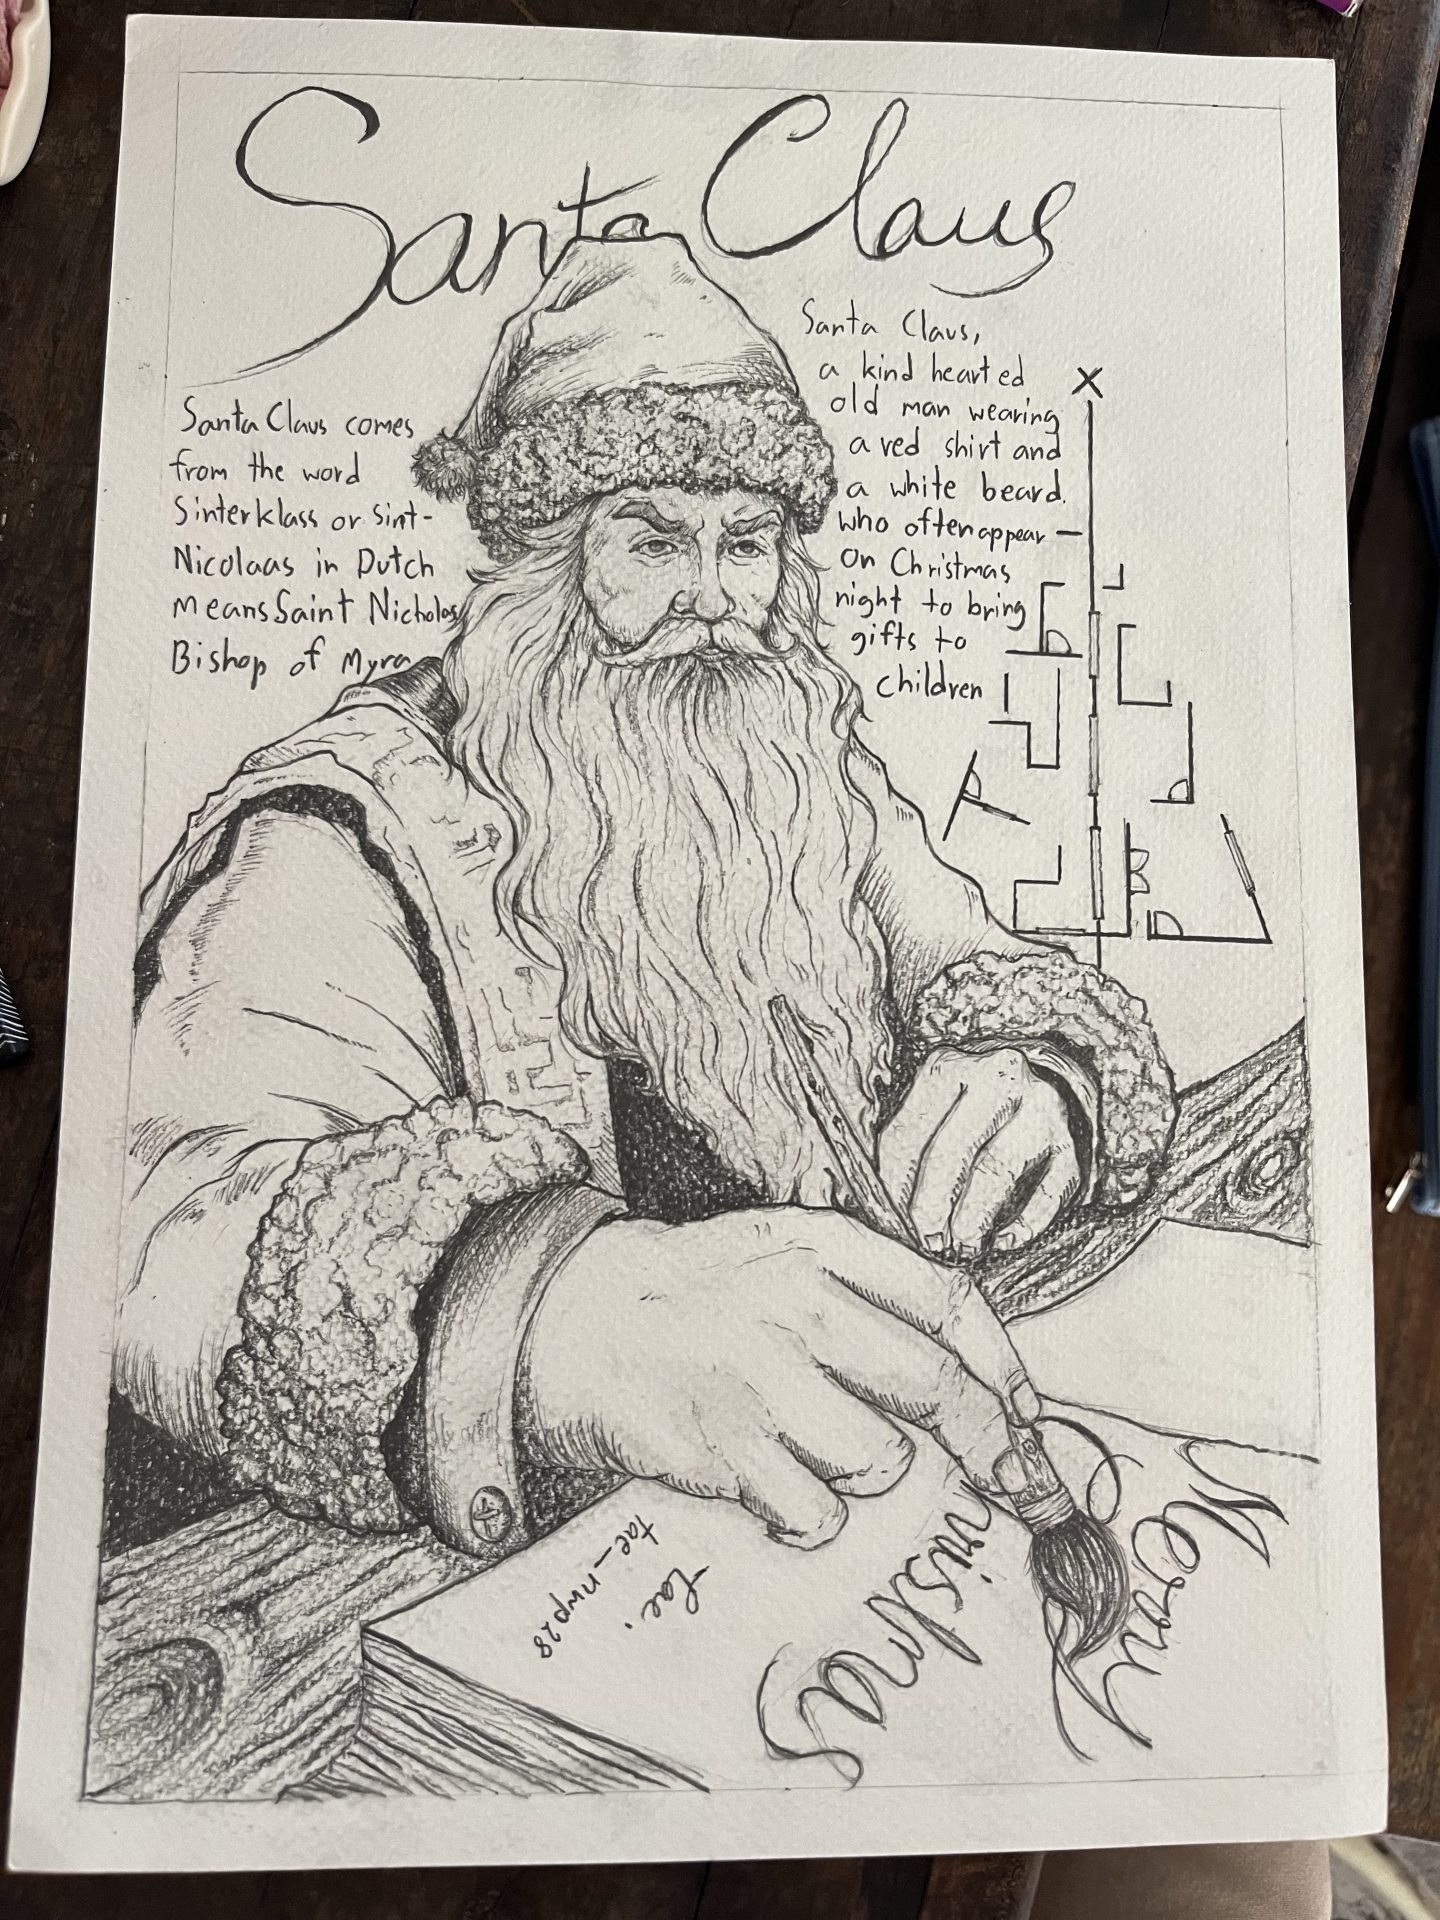 Santa Claus
Santa Claus comes
from the word
Sinterklass or Sint-
Nicolaas in Dutch
means Saint Nicholas
Bishop of Myra
Santa Claus,
a kind hearted
old man wearing
a red shirt and
a white beard.
who often appear
on Christmas
night to bring
gifts to
children
X
Merry
Christmas
tae.
tae_nwp28